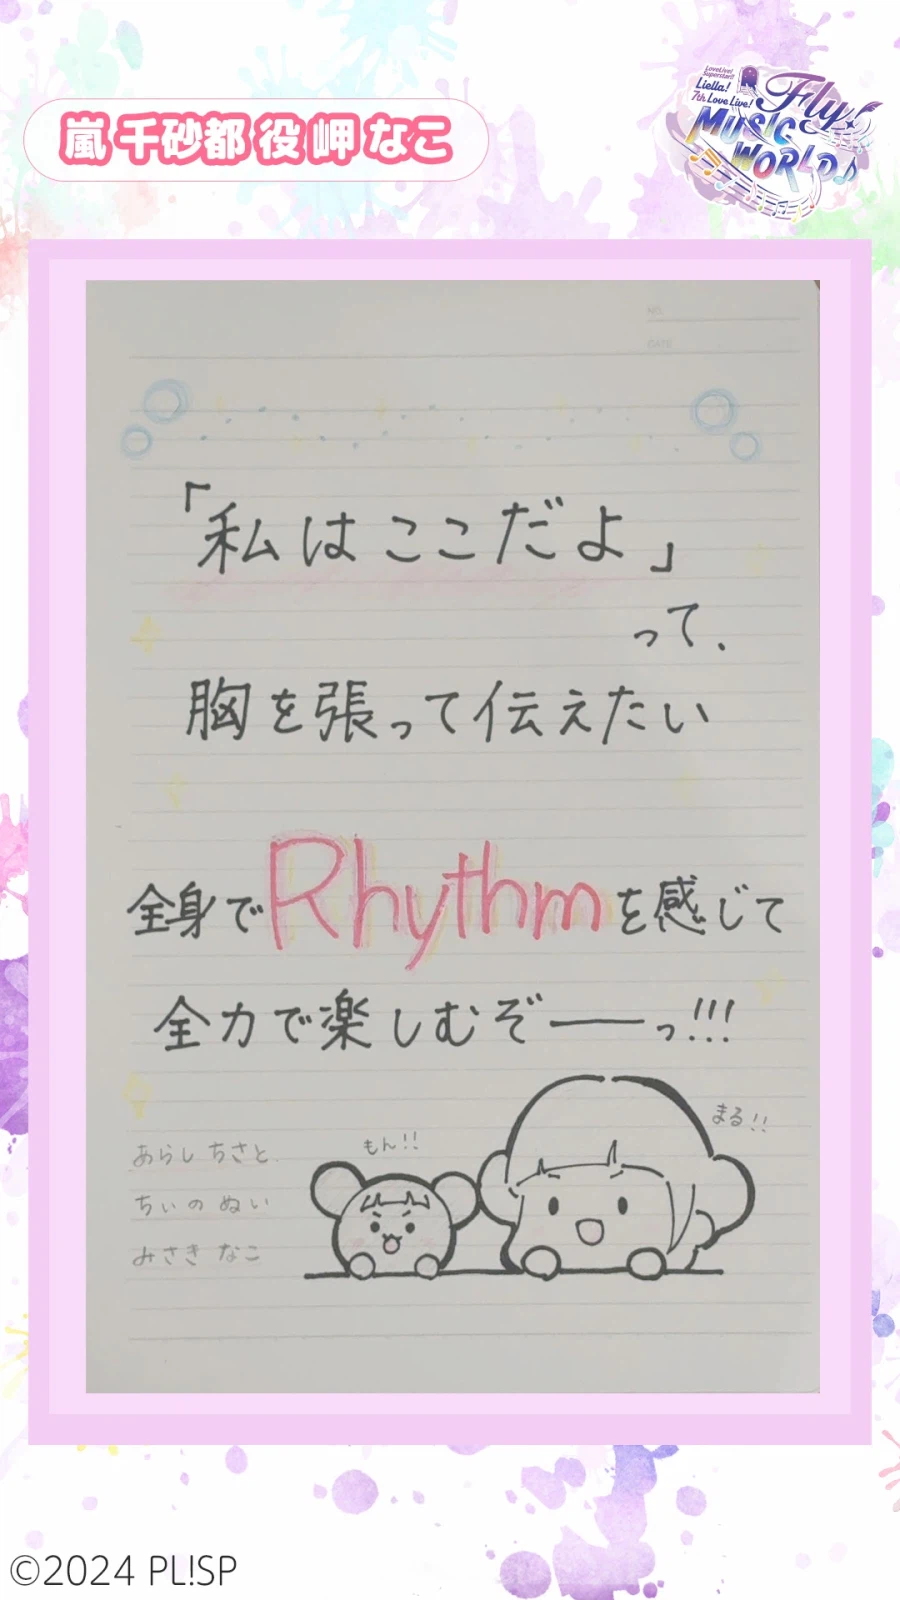 嵐 千砂都 役 岬 なこ
LoveLive! Superstar!!
Liella!
7th Love Live!
Fly!
MUSIC
WORLD♪
NO.
DATE
「私はここだよ」
って、
胸を張って伝えたい
全身でRhythmを感じて
全力で楽しむぞーーっ!!!
まる!!
もん!!
あらし ちさと
ちぃの ぬい
みさき なこ
©2024 PL!SP